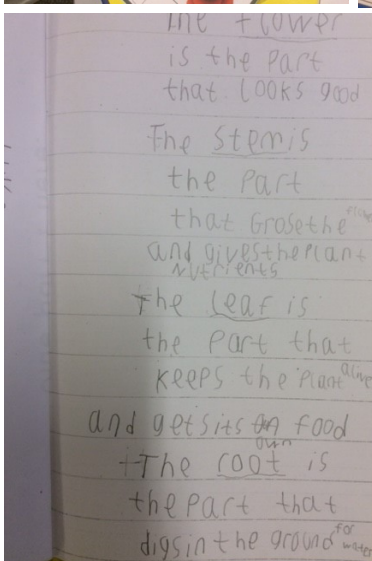 The flower
is the part
that looks good
The stem is
the part
that Grose the
and gives the plant
Nutrients
The leaf is
the part that
keeps the Plant alive
and gets its own food
The root is
the part that
digs in the ground for water